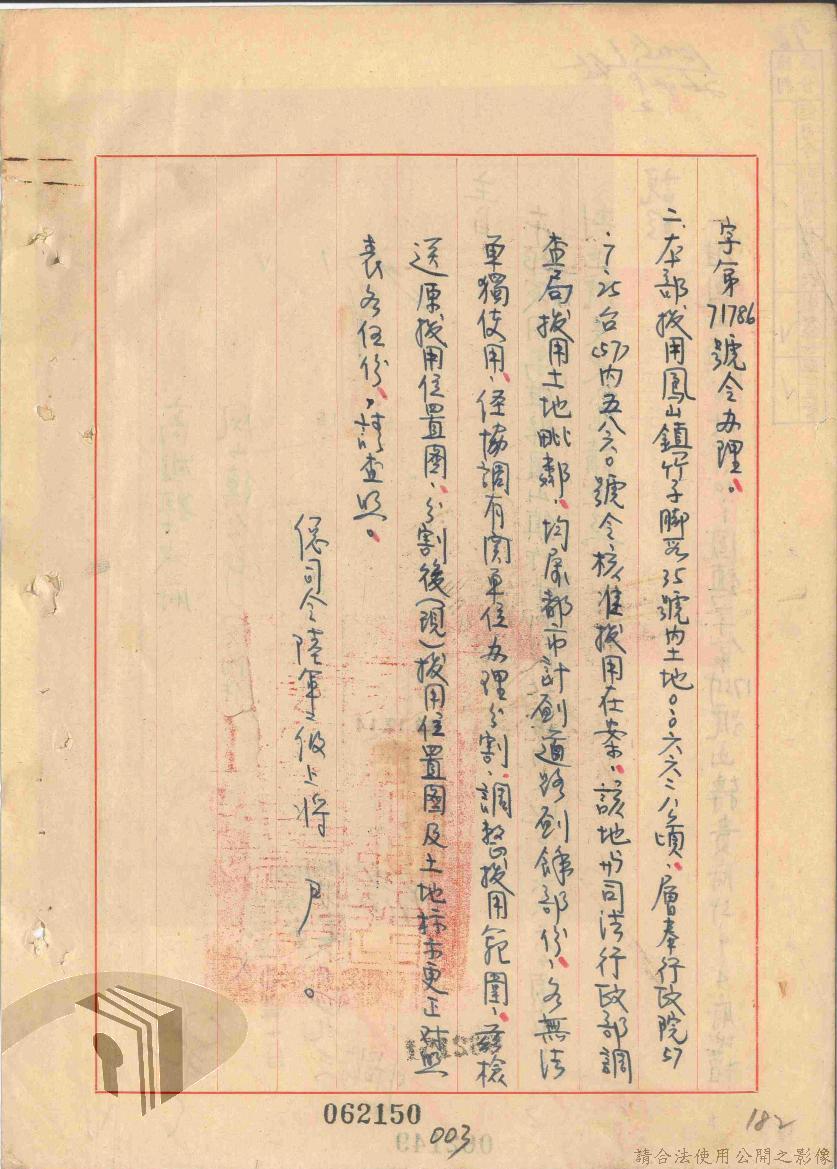 字第71786號令办理。
二、本部拨用鳳山鎮竹子脚段35號內土地0.0六六二公頃、層奉行政院57
.7.25台(57)內五八六0號令核准拨用在案、該地与司法行政部調
查局拨用土地毗鄰、均屬都市計劃道路劃餘部份、各無法
单獨使用、经協調有関单位办理分割、調整拨用範圍、兹檢
送原拨用位置圖、分割後(現)拨用位置圖及土地标示更正对照
表各伍份、請查照。
總司令陸軍二級上將 尹 。
062150
003
182
請合法使用公開之影像